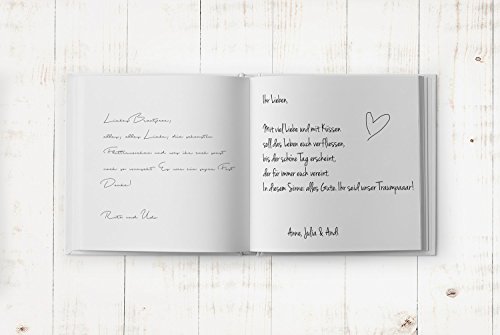 Liebes Brautpaar,
alles, alles Liebe, die schönsten
Flitterwochen und was ihr euch sonst
noch so wünscht. Es war ein super Fest
Danke!
Ruth und Udo
Ihr Lieben,
Mit viel Liebe und mit Küssen
soll das Leben euch verfliessen,
bis der schöne Tag erscheint,
der für immer euch vereint.
In diesem Sinne: alles Gute. Ihr seid unser Traumpaaar!
Anne, Julia & Andi